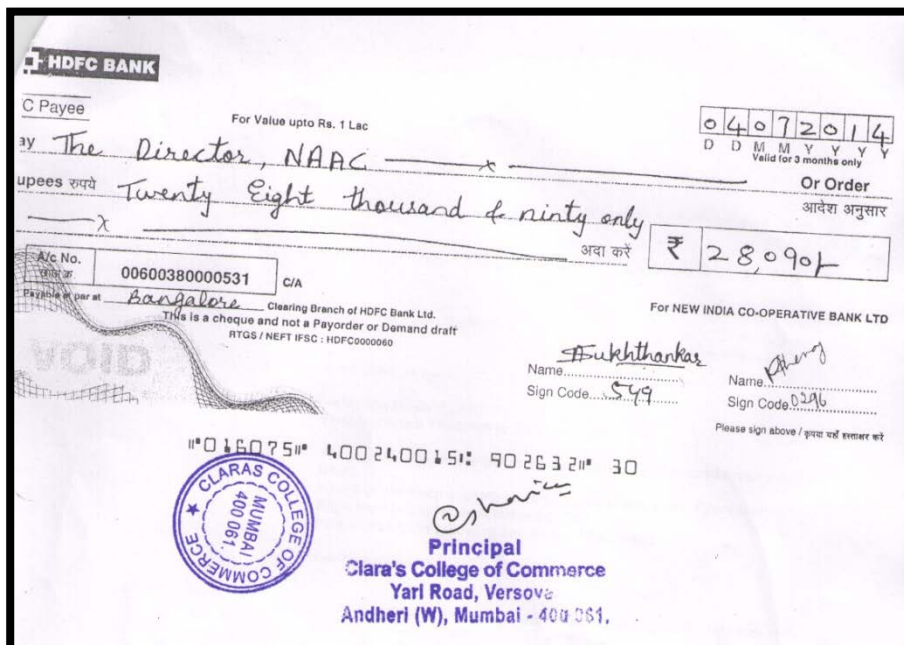 HDFC BANK
C Payee
For Value upto Rs. 1 Lac
0 4 0 7 2 0 1 4
D D M M Y Y Y Y
Valid for 3 months only
ay The Director, NAAC x
Or Order
upees रुपये Twenty Eight thousand & ninty only
आदेश अनुसार
x अदा करें ₹ 28,090/-
A/c No.
00600380000531 C/A
Payable at par at Bangalore Clearing Branch of HDFC Bank Ltd.
This is a cheque and not a Payorder or Demand draft
RTGS / NEFT IFSC : HDFC0000060
For NEW INDIA CO-OPERATIVE BANK LTD
VOID
Sukhthankar
Name
Sign Code 549
Name
Sign Code 0296
Please sign above / कृपया यहाँ हस्ताक्षर करें
⑈016075⑈ 400240015⑆ 902632⑈ 30
CLARAS COLLEGE OF COMMERCE
MUMBAI
400 061
Principal
Clara's College of Commerce
Yari Road, Versova
Andheri (W), Mumbai - 400 061.